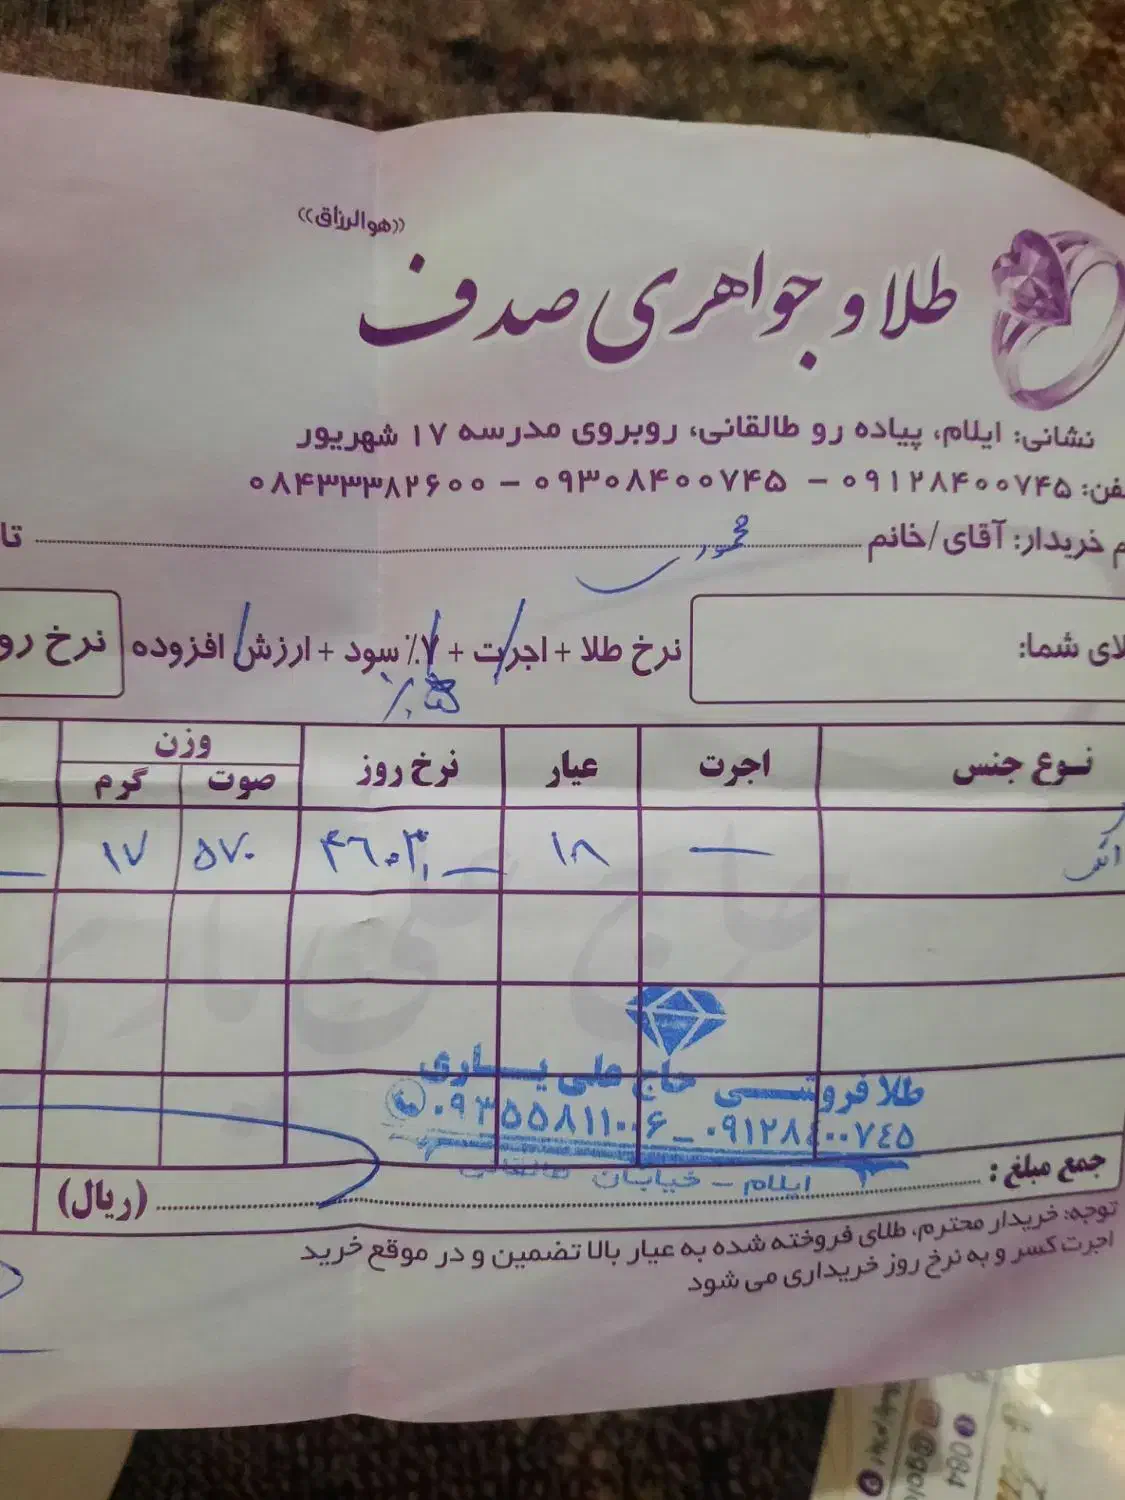 «هوالرزاق»
طلا و جواهری صدف
نشانی: ایلام، پیاده رو طالقانی، روبروی مدرسه ۱۷ شهریور
فن: ۰۹۱۲۸۴۰۰۷۴۵ - ۰۹۳۰۸۴۰۰۷۴۵ - ۰۸۴۳۳۳۸۲۶۰۰
م خریدار: آقای/خانم محمود تا
لای شما: نرخ طلا + اجرت + ۷٪ سود + ارزش افزوده نرخ رو
٪.۵
نوع جنس اجرت عیار نرخ روز وزن
صوت گرم
— ۱۸ ۴۶۰۳۰ — ۵۷۰ ۱۷
طلا فروشی حاج علی یاری
۰۹۱۲۸۴۰۰۷۴۵ - ۰۹۳۵۵۸۱۱۰۰۶
ایلام - خیابان طالقانی
جمع مبلغ: (ریال)
توجه: خریدار محترم، طلای فروخته شده به عیار بالا تضمین و در موقع خرید
اجرت کسر و به نرخ روز خریداری می شود
084